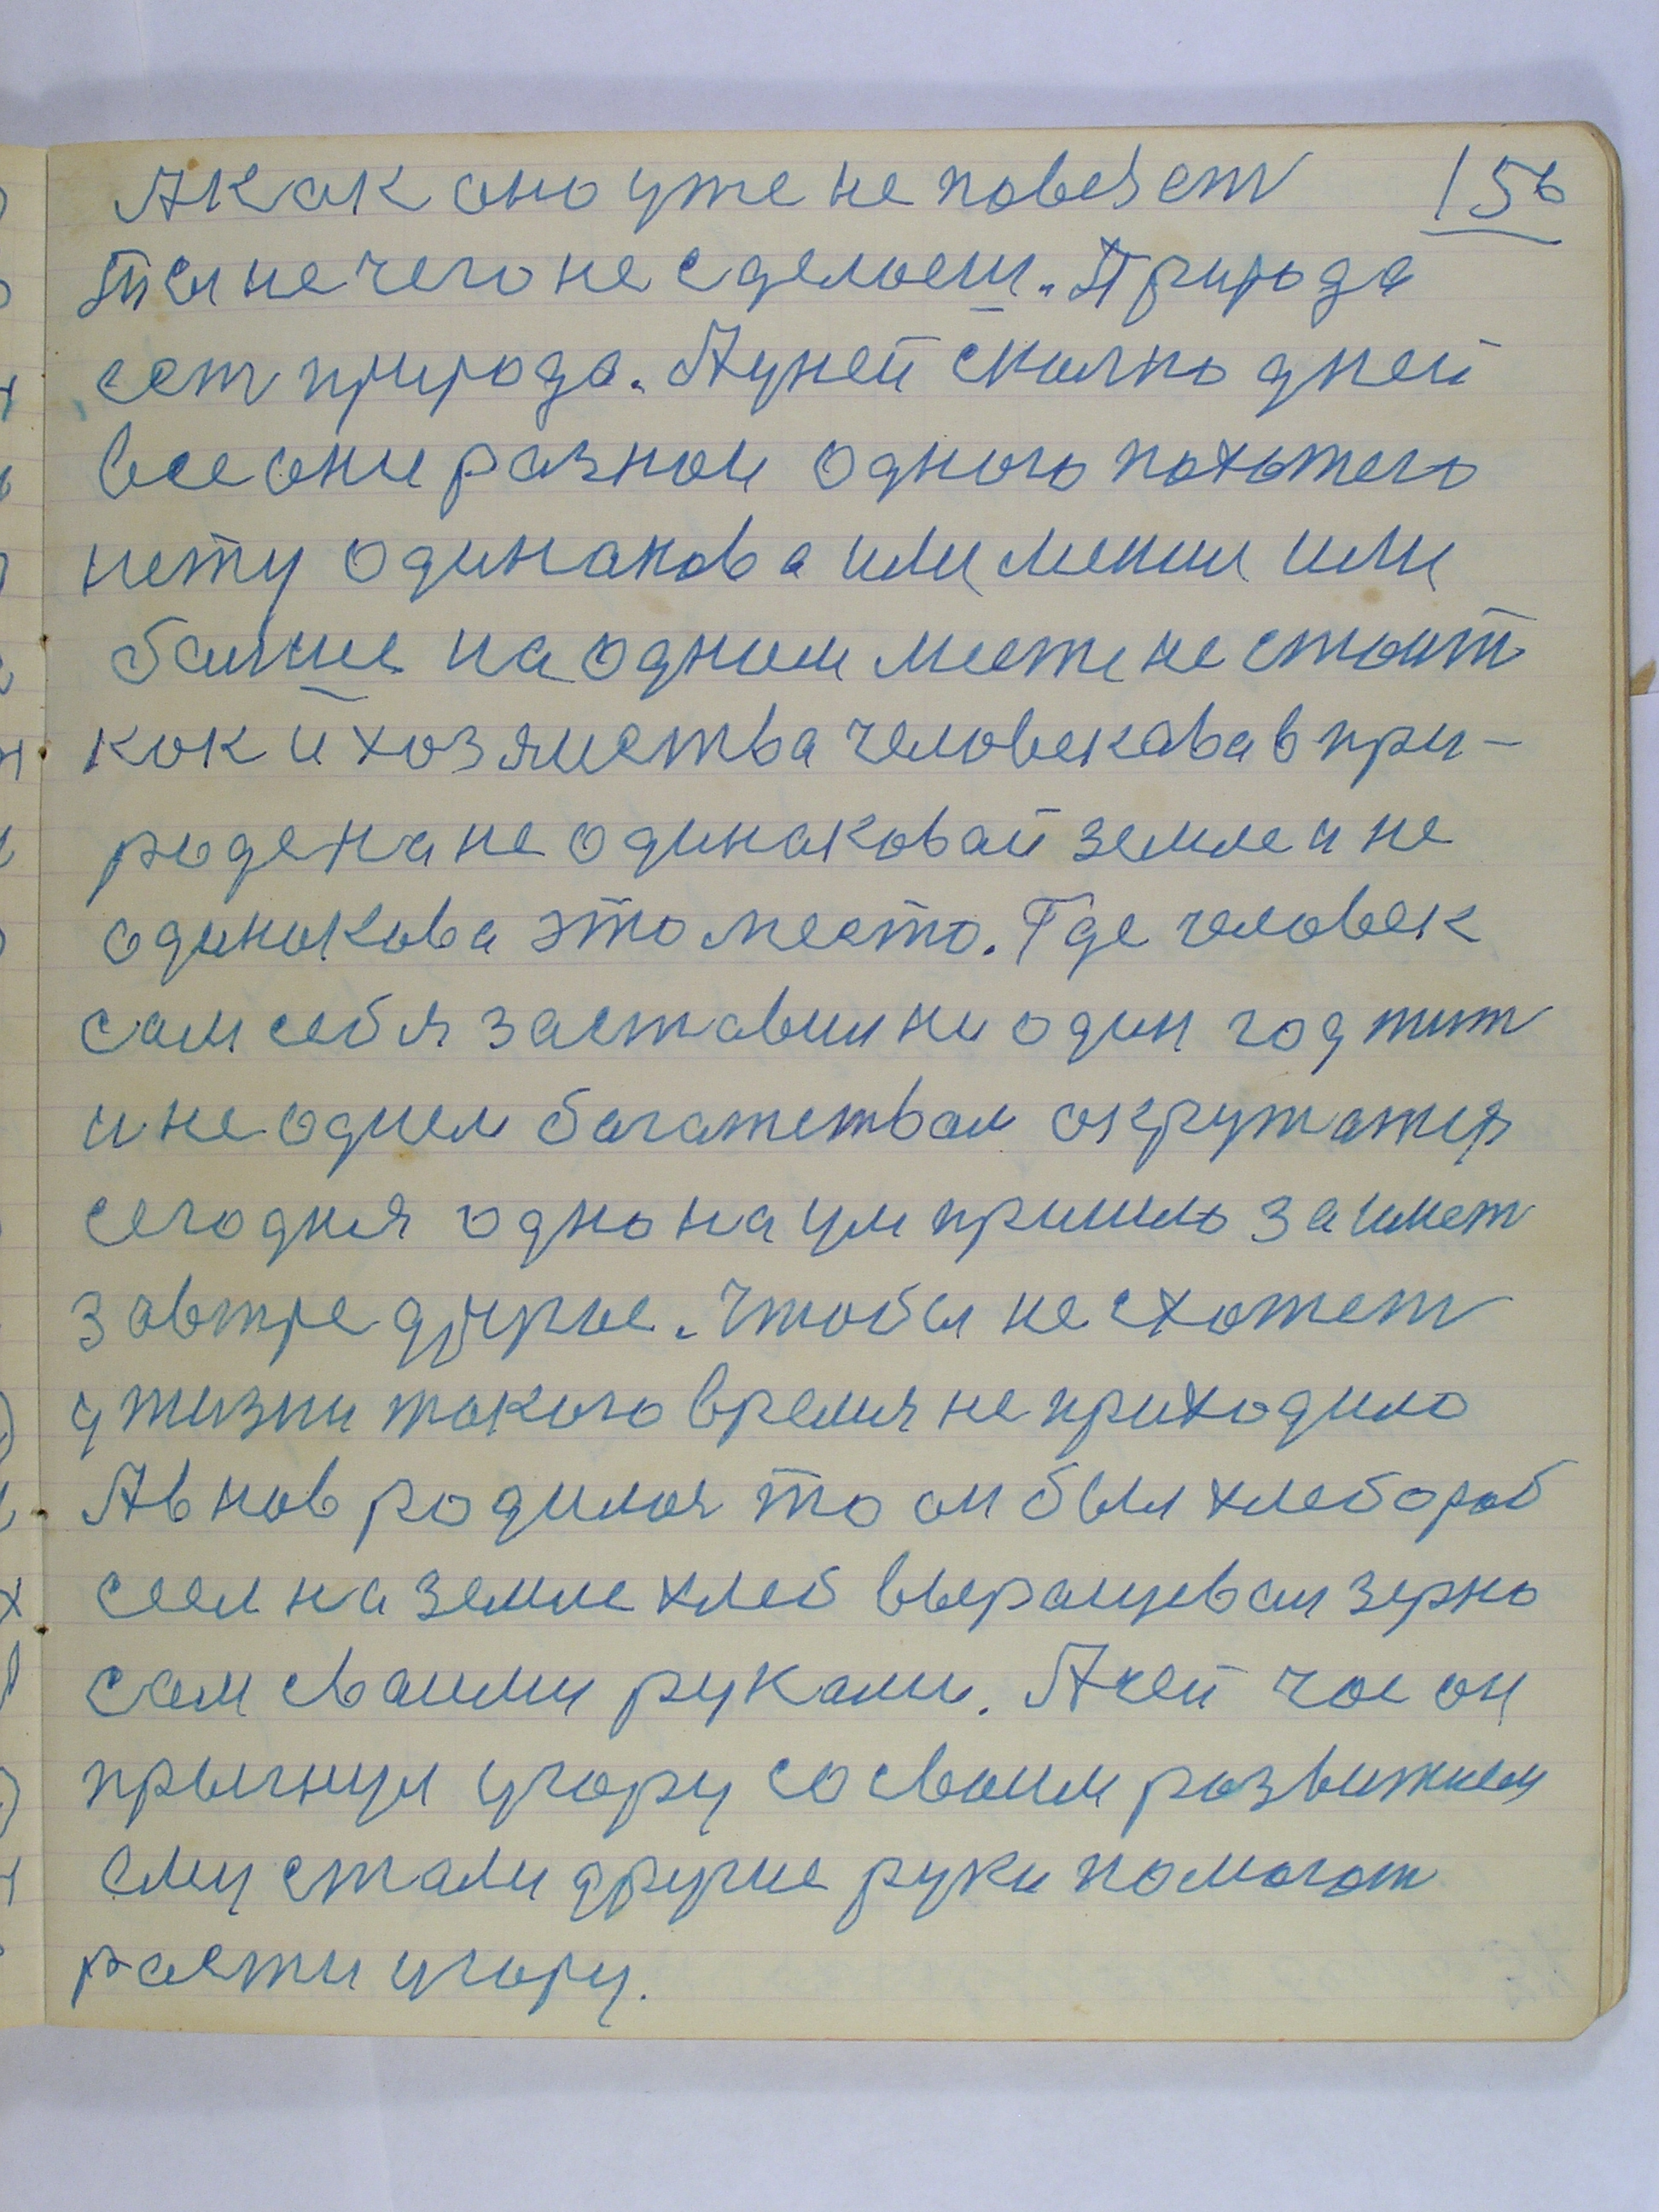 А как оно уже не повезет 156
ты не чего не сделаеш. Природа
ест природа. А у ней сколко дней
все они разнои одного похожего
нету одинакова или мении или
балние на одним месте не стоит
как и хозяиства человекава в при-
роде на не одинаковай земле и не
одинакова это место. Где человек
сам себя заставил ни один год жит
и не одним богатством окружатся
сегодня одно на ум пришло заимет
завтре другое. Чтобы не схожет
у жизни такого время не приходило
А внов родился то он был хлебороб
сеел на земле хлеб выращевал зерно
сам своими руками. А чей час он
прыгнул угору со своим розвитием
ему стали другие руки помагат
расти угору.